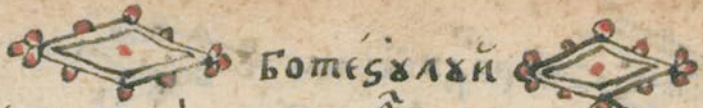 ботеꙃꙋлꙋй